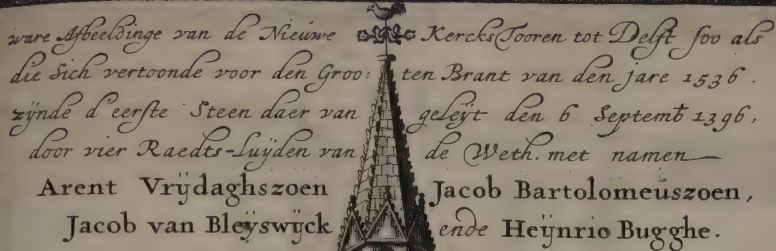 ware Afbeeldinge van de Nieuwe Kercks Tooren tot Delft soo als
die Sich vertoonde voor den Groo: ten Brant van den jare 1536.
zÿnde d'eerste Steen daer van geleÿt den 6 Septemb 1396,
door vier Raedts-Luÿden van de Weth. met namen
Arent Vrÿdaghszoen Jacob Bartolomeuszoen,
Jacob van Bleÿswÿck ende Heÿnrio Bugghe.